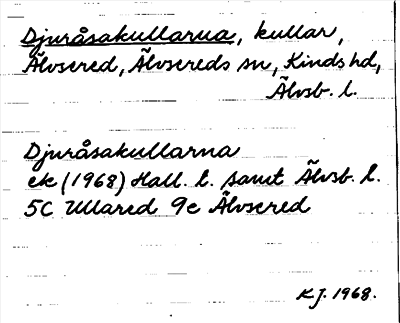 Djuråsakullarna, kullar,
Älvsered, Älvsereds sn, Kinds hd,
Älvsb. l.
Djuråsakullarna
ek (1968) Hall. l. samt Älvsb. l.
5C Ullared 9e Älvsered
KJ. 1968.